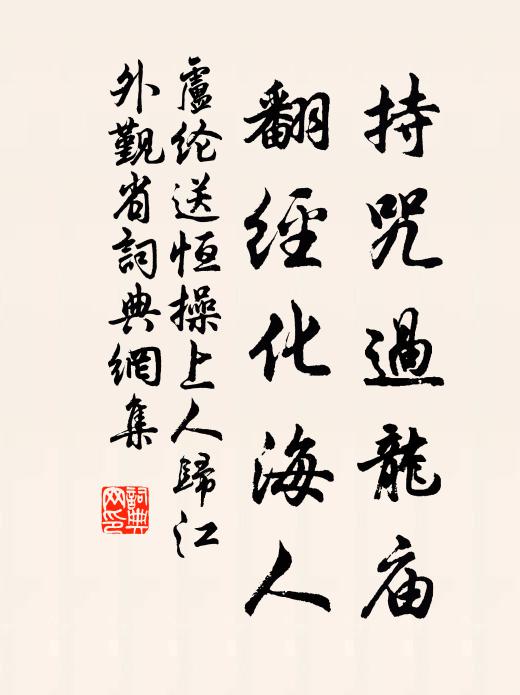 持咒過龍庙
翻經化海人
盧纶送恒操上人歸江
外觐省詞典網集
詞典
网印